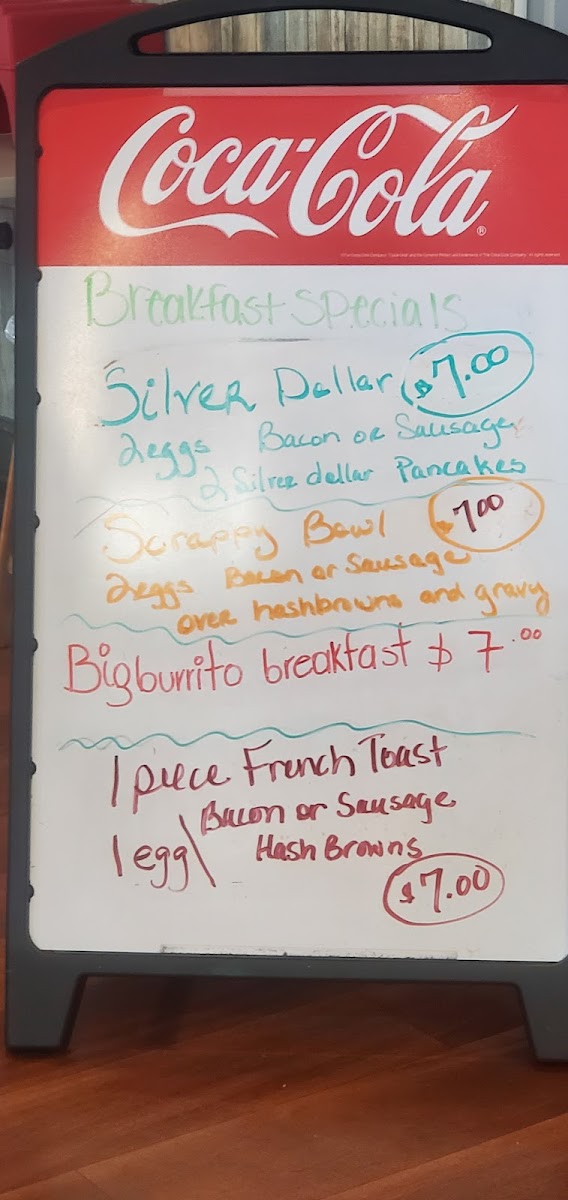 Coca-Cola®
Breakfast specials
Silver Dollar $7.00
2eggs Bacon or Sausage
2 Silver dollar Pancakes
Scrappy Bowl $700
2eggs Bacon or Sausage
over hashbrowns and gravy
Big burrito breakfast $7.00
1 piece French Toast
Bacon or Sausage
1 egg\ Hash Browns
$7.00